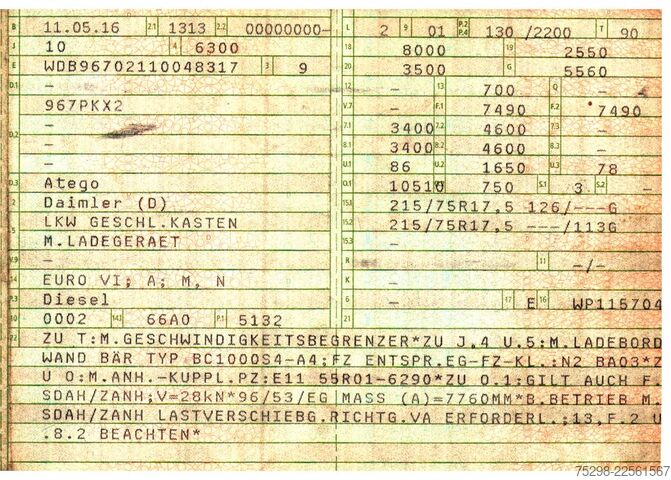 B 11.05.16 2.1 1313 2.2 00000000- L 2 9 01 P.2 P.4 130 /2200 T 90
J 10 4 6300 18 8000 19 2550
E WDB96702110048317 3 9 20 3500 G 5560
D.1 – 12 – 13 700 Q –
967PKX2 V.7 – F.1 7490 F.2 7490
D.2 – 7.1 3400 7.2 4600 7.3 –
– 8.1 3400 8.2 4600 8.3 –
– U.1 86 U.2 1650 U.3 78
D.3 Atego O.1 10510 750 S.1 3 S.2 –
2 Daimler (D) 15.1 215/75R17,5 126/---G
5 LKW GESCHL.KASTEN 15.2 215/75R17,5 ---/113G
M.LADEGERAET 15.3 –
V.9 – R – 11 –/–
14 EURO VI; A; M, N K –
P.3 Diesel 6 – 17 E 16 WP115704
10 0002 14.1 66A0 P.1 5132 21
22 ZU T:M.GESCHWINDIGKEITSBEGRENZER*ZU J,4 U.5:M.LADEBORD
WAND BÄR TYP BC1000S4-A4;FZ ENTSPR.EG-FZ-KL.:N2 BA03*Z
U O:M.ANH.-KUPPL.PZ:E11 55R01-6290*ZU O.1:GILT AUCH F.
SDAH/ZANH;V=28kN*96/53/EG MASS (A)=7760MM*B.BETRIEB M.
SDAH/ZANH LASTVERSCHIEBG.RICHTG.VA ERFORDERL.;13,F.2 U
.8.2 BEACHTEN*
75298-22561567